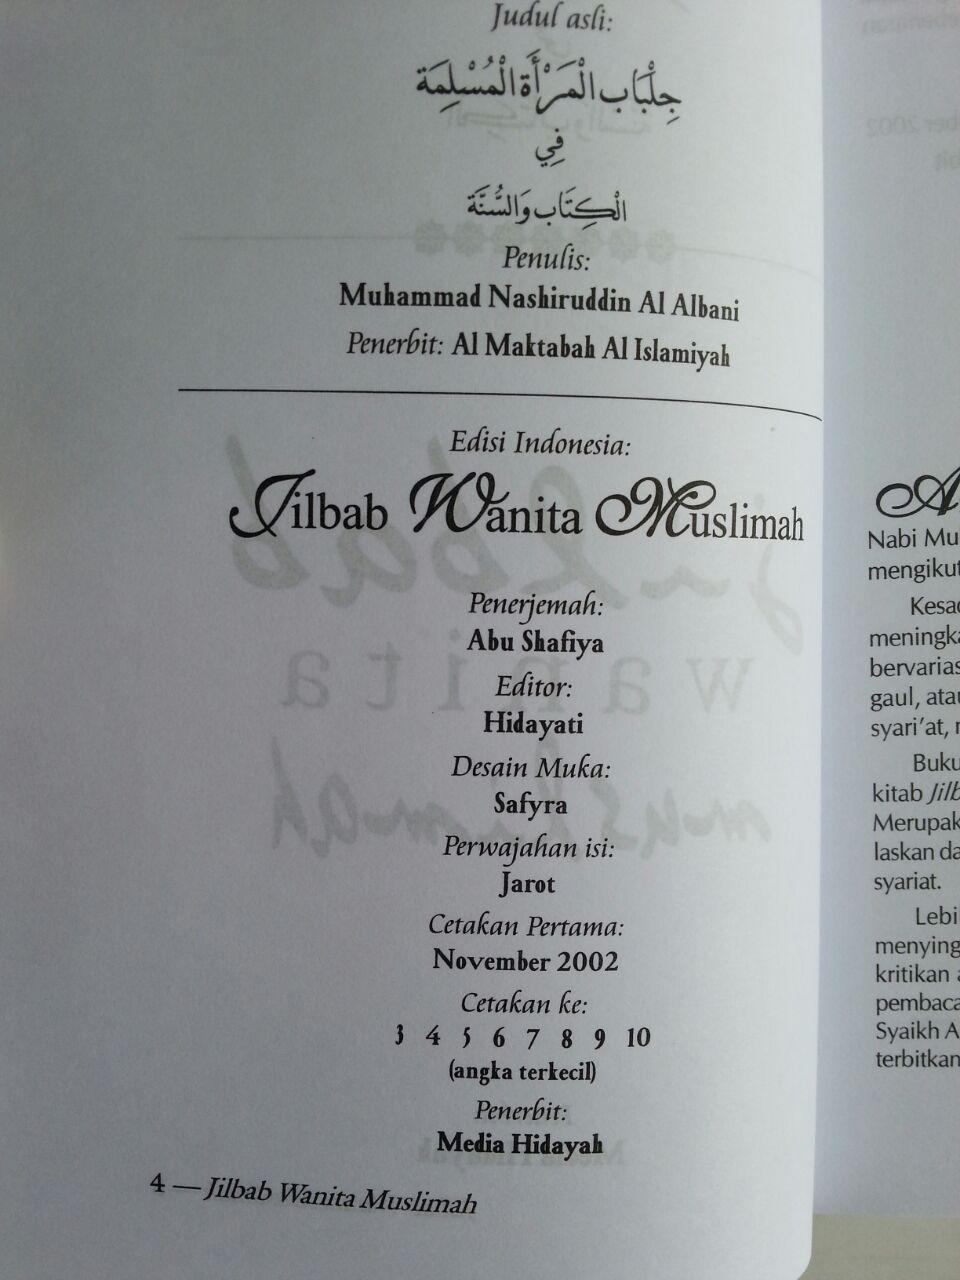 Judul asli:
جِلْبَاب الْمَرْأَة الْمُسْلِمَة
فِي
الْكِتَاب وَالسُّنَّة
Penulis:
Muhammad Nashiruddin Al Albani
Penerbit: Al Maktabah Al Islamiyah
Edisi Indonesia:
Jilbab Wanita Muslimah
Penerjemah:
Abu Shafiya
Editor:
Hidayati
Desain Muka:
Safyra
Perwajahan isi:
Jarot
Cetakan Pertama:
November 2002
Cetakan ke:
3 4 5 6 7 8 9 10
(angka terkecil)
Penerbit:
Media Hidayah
4 — Jilbab Wanita Muslimah
Nabi Mu
mengikut
Kesad
meningka
bervarias
gaul, atau
syari'at,
Buku
kitab Jilb
Merupak
laskan da
syariat.
Lebi
menying
kritikan
pembaca
Syaikh A
terbitkan